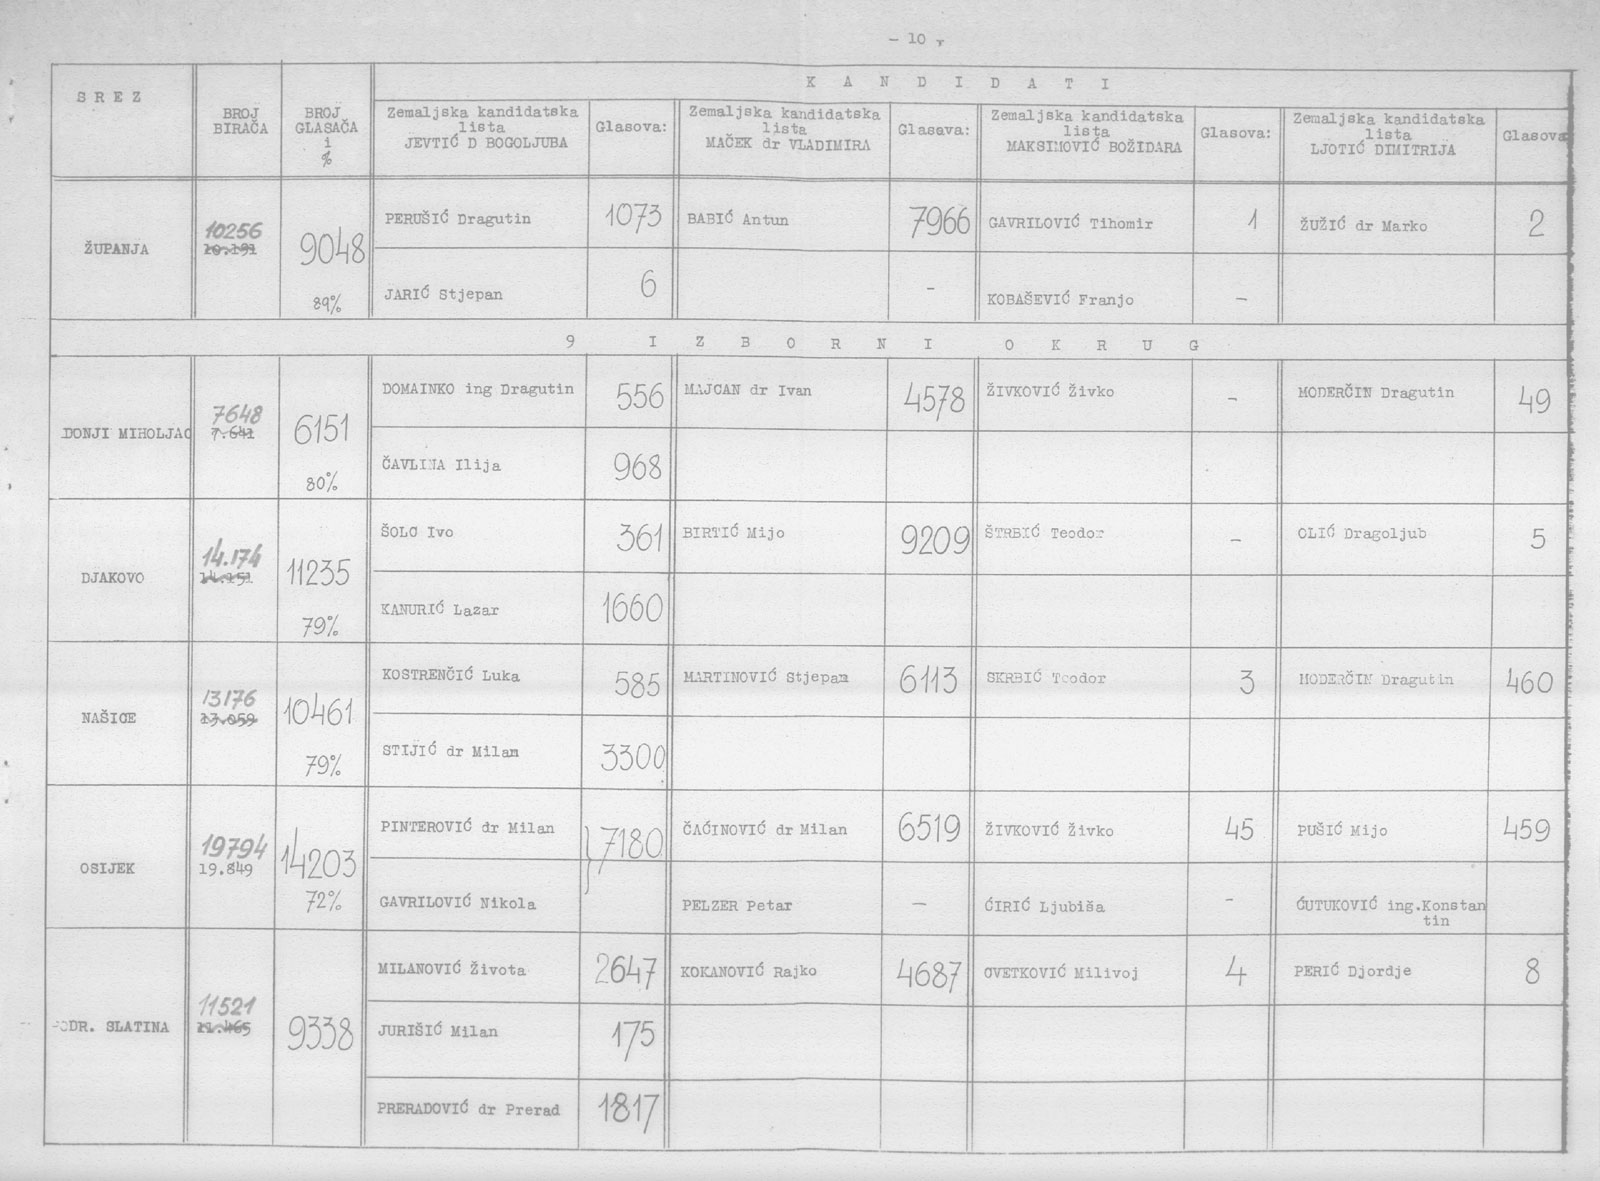 - 10 -
SREZ
BROJ BIRAČA
BROJ GLASAČA i %
KANDIDATI
Zemaljska kandidatska lista JEVTIĆ D BOGOLJUBA
Glasova:
Zemaljska kandidatska lista MAČEK dr VLADIMIRA
Glasava:
Zemaljska kandidatska lista MAKSIMOVIĆ BOŽIDARA
Glasova:
Zemaljska kandidatska lista LJOTIĆ DIMITRIJA
Glasova
ŽUPANJA
10256
10.191
9048
89%
PERUŠIĆ Dragutin 1073 BABIĆ Antun 7966 GAVRILOVIĆ Tihomir 1 ŽUŽIĆ dr Marko 2
JARIĆ Stjepan 6 - KOBAŠEVIĆ Franjo -
9 IZBORNI OKRUG
DONJI MIHOLJAC
7648
7.641
6151
80%
DOMAINKO ing Dragutin 556 MAJCAN dr Ivan 4578 ŽIVKOVIĆ Živko - MODERČIN Dragutin 49
ČAVLINA Ilija 968
DJAKOVO
14.174
14.151
11235
79%
ŠOLC Ivo 361 BIRTIĆ Mijo 9209 ŠTRBIĆ Teodor - OLIĆ Dragoljub 5
KANURIĆ Lazar 1660
NAŠICE
13176
13.059
10461
79%
KOSTRENČIĆ Luka 585 MARTINOVIĆ Stjepan 6113 SKRBIĆ Teodor 3 MODERČIN Dragutin 460
STIJIĆ dr Milan 3300
OSIJEK
19794
19.849
14203
72%
PINTEROVIĆ dr Milan }7180 ČAĆINOVIĆ dr Milan 6519 ŽIVKOVIĆ Živko 45 PUŠIĆ Mijo 459
GAVRILOVIĆ Nikola PELZER Petar - ĆIRIĆ Ljubiša - ĆUTUKOVIĆ ing.Konstan
tin
PODR. SLATINA
11521
11.465
9338
MILANOVIĆ Života 2647 KOKANOVIĆ Rajko 4687 CVETKOVIĆ Milivoj 4 PERIĆ Djordje 8
JURIŠIĆ Milan 175
PRERADOVIĆ dr Prerad 1817